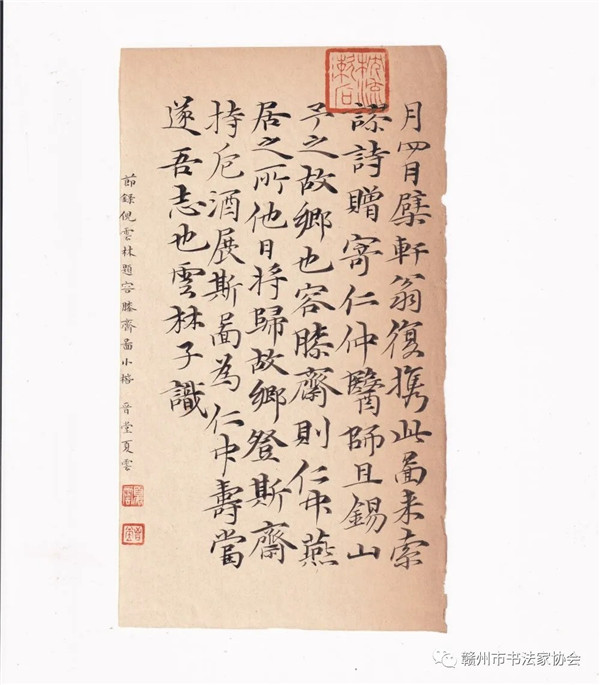 枕流漱石
月四日檗軒翁復携此啚来索
謬詩贈寄仁仲醫師且錫山
予之故鄉也容膝齋則仁中燕
居之所他日将歸故鄉登斯齋
持卮酒展斯啚為仁中壽當
遂吾志也雲林子識
節錄倪雲林題容膝齋啚小楷 音堂夏雲
赣州市书法家协会